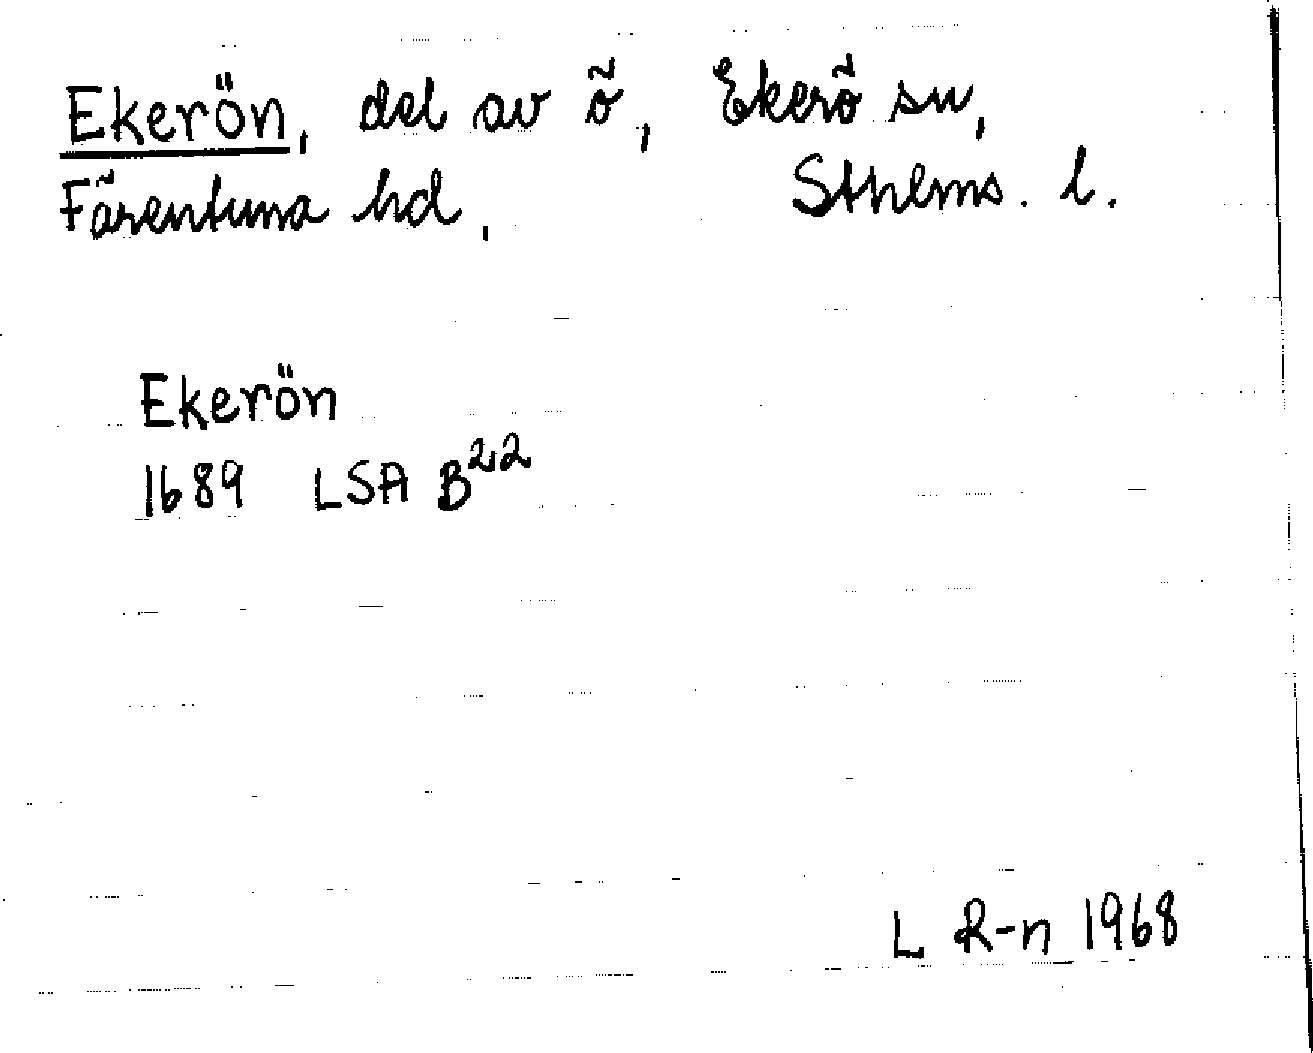 Ekerön, del av ö, Ekerö sn,
Färentuna hd, Sthlms. l.
Ekerön
1689 LSA B²²
L R-n 1968